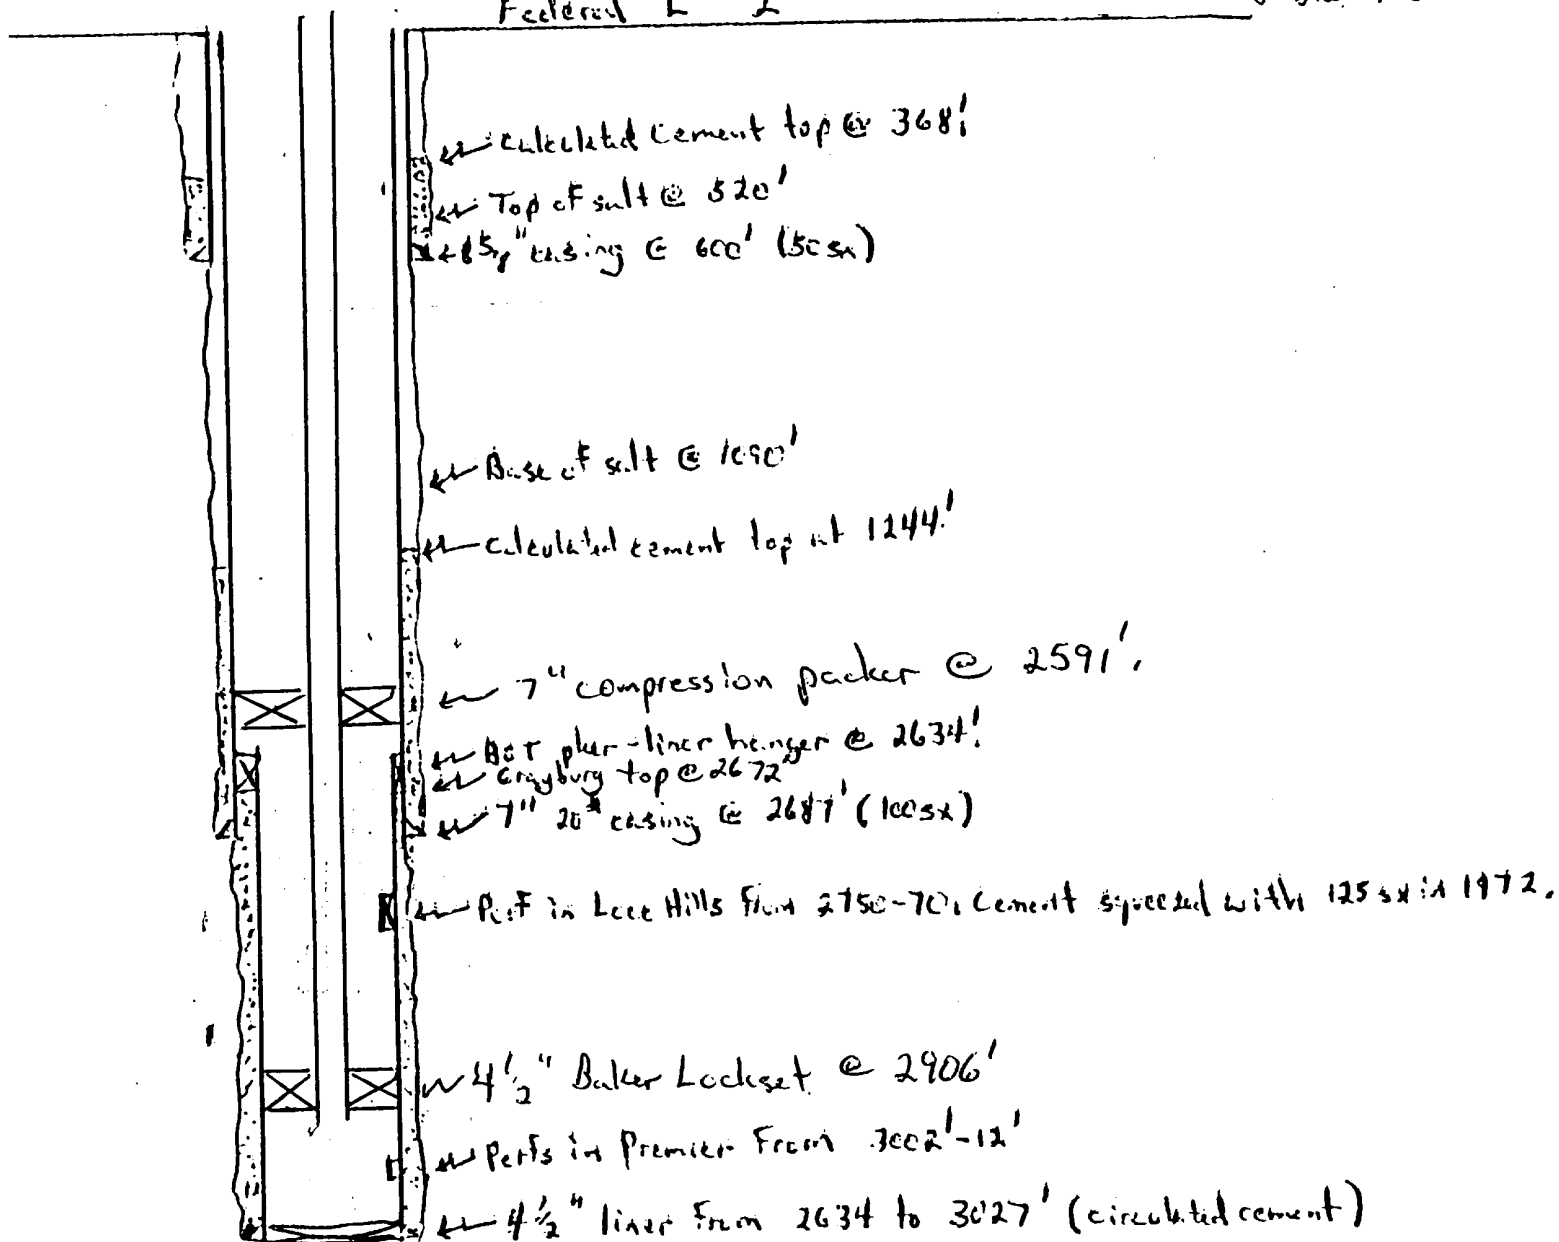 Federal L 2
Calculated Cement top @ 368'
Top of salt @ 520'
8 5/8" casing @ 600' (50 sx)
Base of salt @ 1090'
Calculated cement top at 1244'
7" compression packer @ 2591'.
BOT pkr-liner hanger @ 2634'
Grayburg top @ 2672'
7" 20# casing @ 2687' (100 sx)
Perf in Loco Hills From 2750-70, Cement squeezed with 125 sx in 1972.
4 1/2" Baker Lockset @ 2906'
Perfs in Premier From 3002'-12'
4 1/2" liner From 2634 to 3027' (circulated cement)